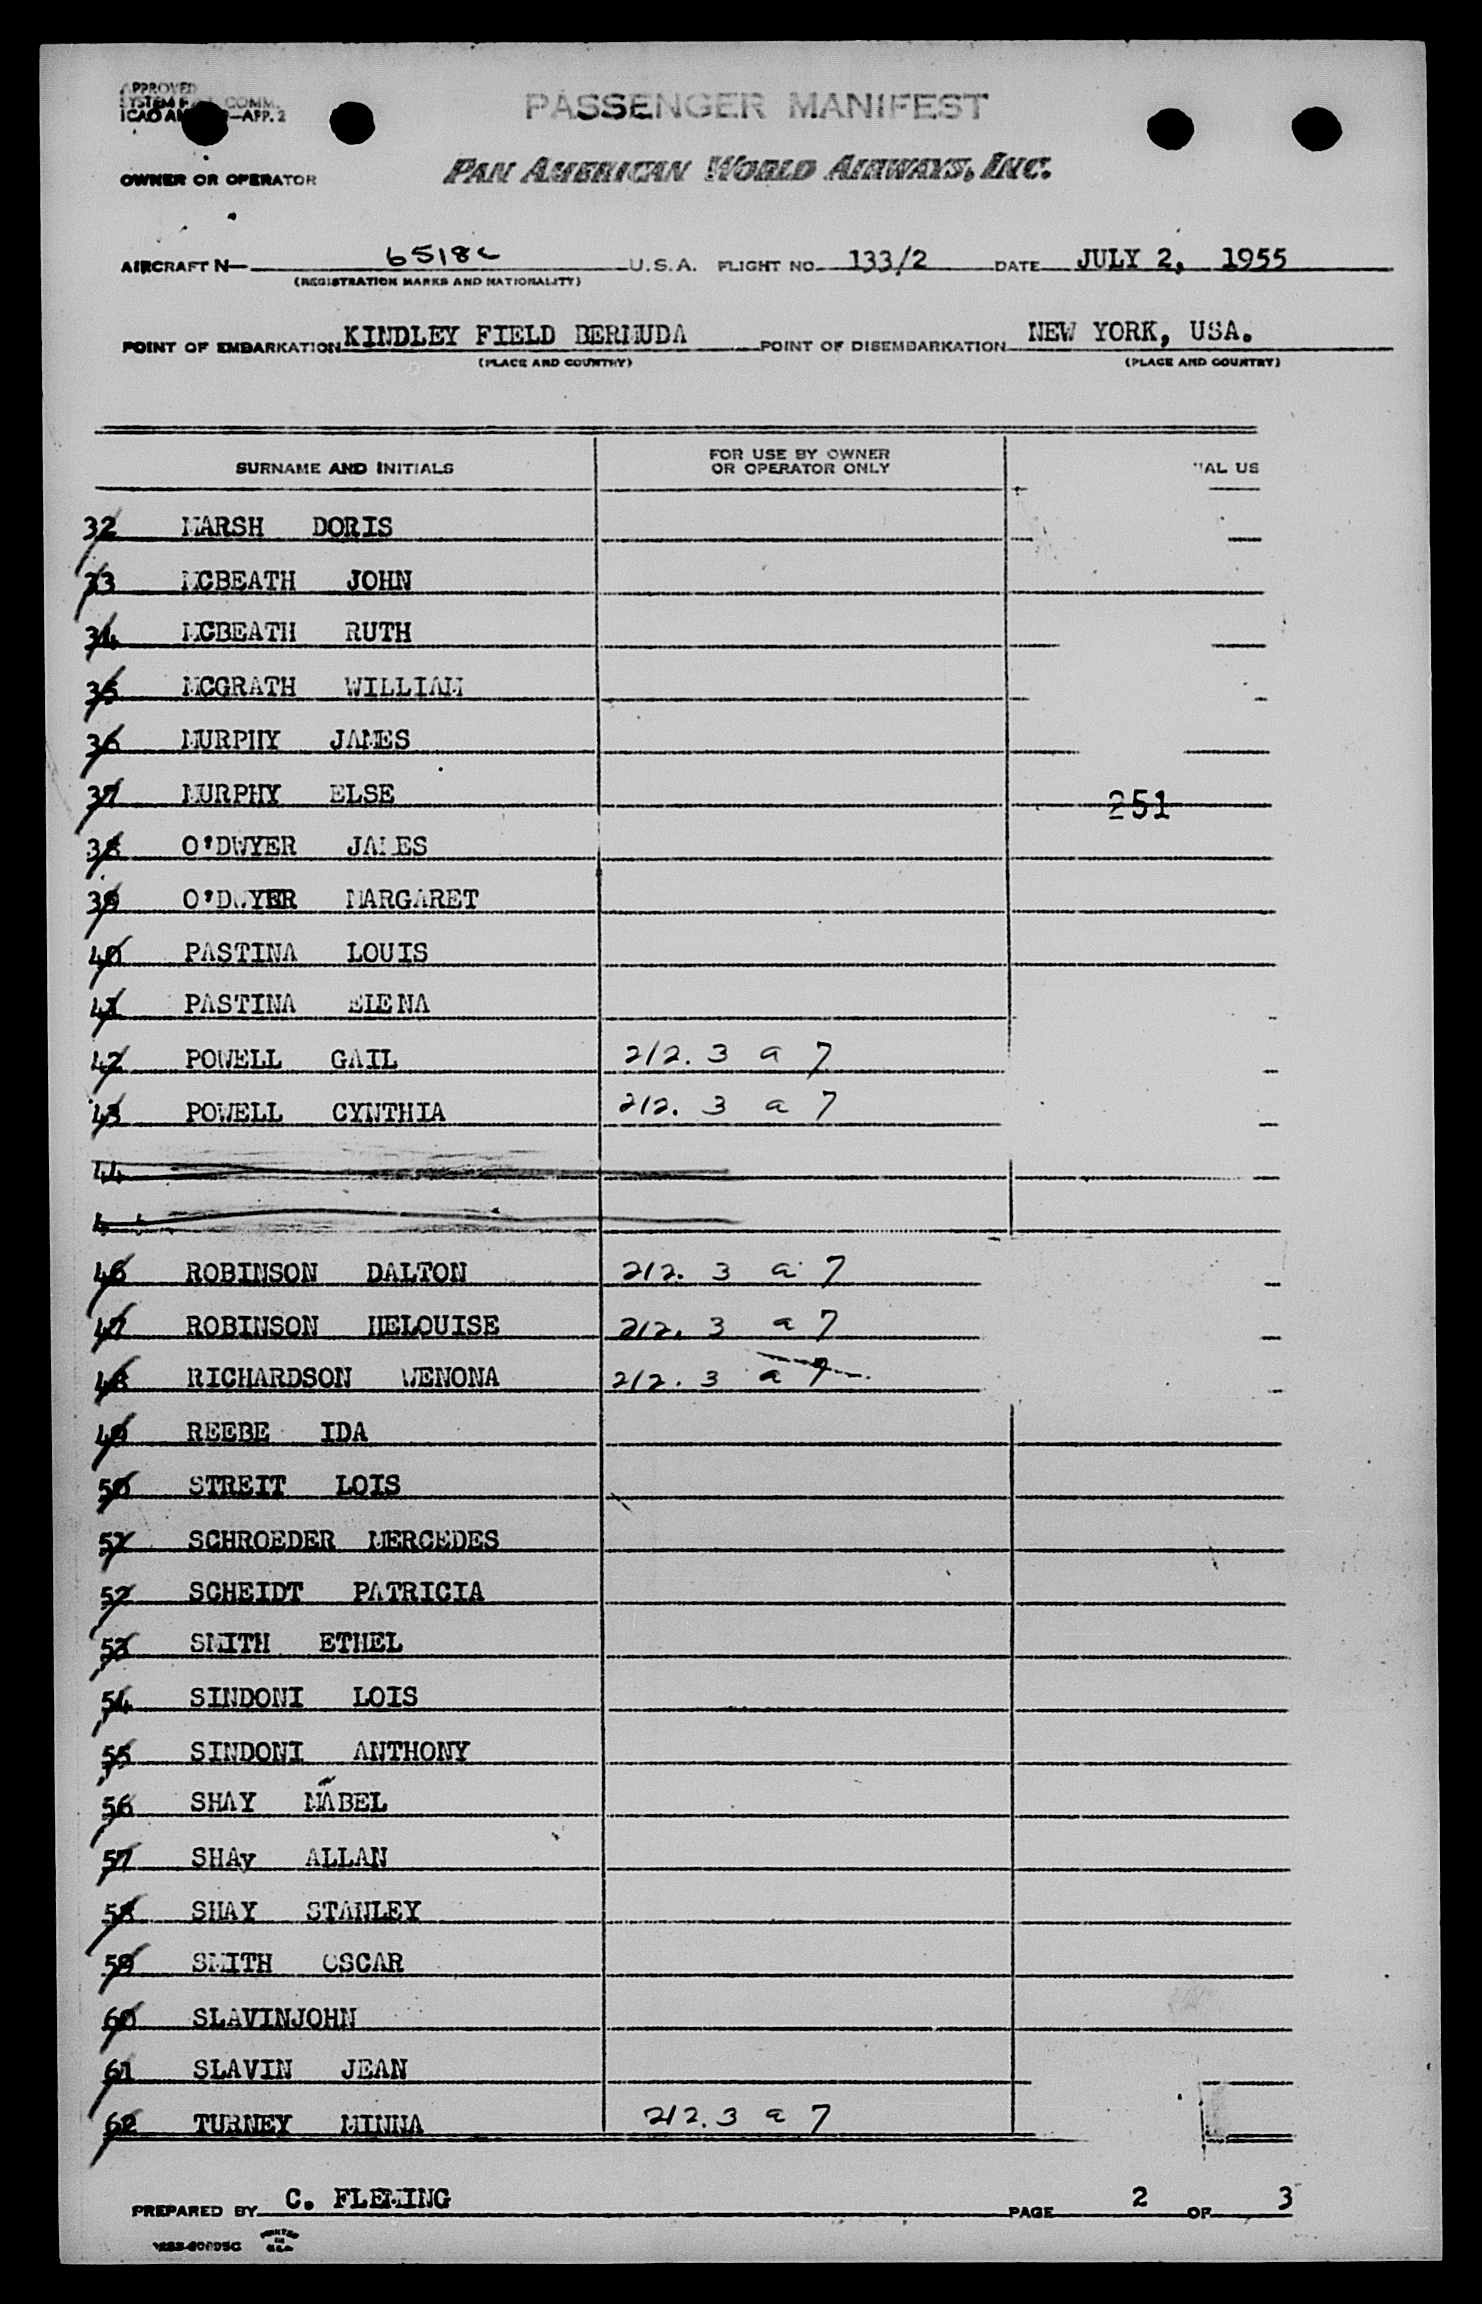 APPROVED
SYSTEM COMM.
ICAO —APP. 2
PASSENGER MANIFEST
OWNER OR OPERATOR PAN AMERICAN WORLD AIRWAYS, INC.
AIRCRAFT N— 6518C U.S.A. FLIGHT NO. 133/2 DATE JULY 2, 1955
(REGISTRATION MARKS AND NATIONALITY)
POINT OF EMBARKATION KINDLEY FIELD BERMUDA POINT OF DISEMBARKATION NEW YORK, USA.
(PLACE AND COUNTRY) (PLACE AND COUNTRY)
SURNAME AND INITIALS FOR USE BY OWNER OR OPERATOR ONLY US
32 MARSH DORIS
33 MCBEATH JOHN
34 MCBEATH RUTH
35 MCGRATH WILLIAM
36 MURPHY JAMES
37 MURPHY ELSE 251
38 O'DWYER JAMES
39 O'DWYER MARGARET
40 PASTINA LOUIS
41 PASTINA ELENA
42 POWELL GAIL 212. 3 a 7
43 POWELL CYNTHIA 212. 3 a 7
44
46 ROBINSON DALTON 212. 3 a 7
47 ROBINSON HELOUISE 212. 3 a 7
48 RICHARDSON WENONA 212. 3 a 7
49 REEBE IDA
50 STREIT LOIS
51 SCHROEDER MERCEDES
52 SCHEIDT PATRICIA
53 SMITH ETHEL
54 SINDONI LOIS
55 SINDONI ANTHONY
56 SHAY MABEL
57 SHAy ALLAN
58 SHAY STANLEY
59 SMITH OSCAR
60 SLAVINJOHN
61 SLAVIN JEAN
62 TURNEY MINNA 212. 3 a 7
PREPARED BY C. FLEMING PAGE 2 OF 3
PRINTED IN U.S.A.